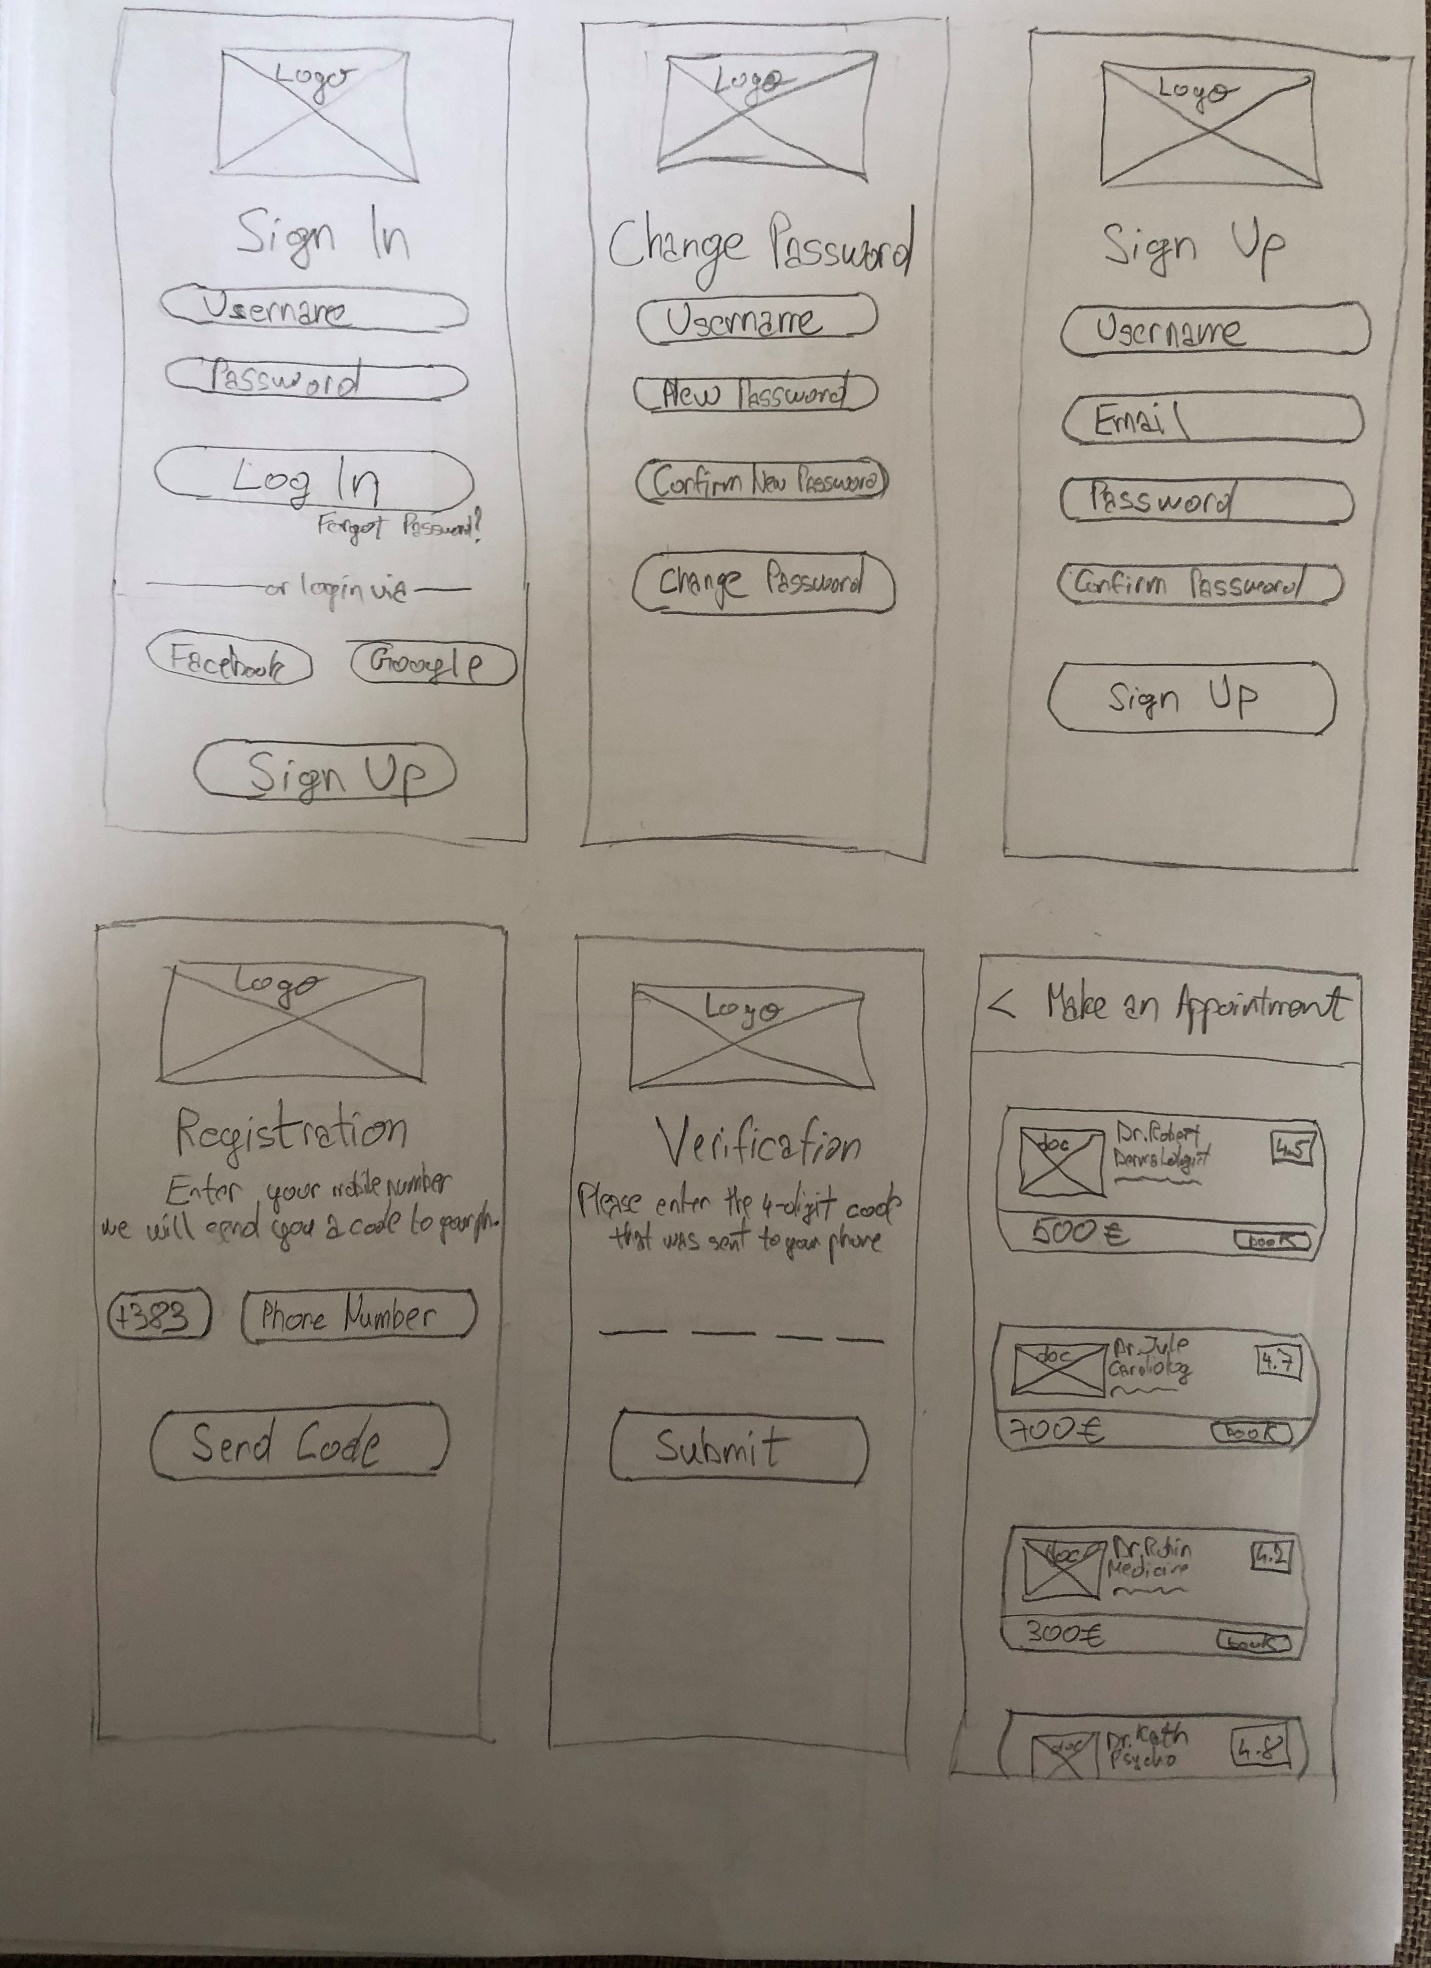 Logo
Sign In
Username
Password
Log In
Forgot Password?
or login via
Facebook Google
Sign Up
Logo
Change Password
Username
New Password
Confirm New Password
Change Password
Logo
Sign Up
Username
Email
Password
Confirm Password
Sign Up
Logo
Registration
Enter your mobile number
we will send you a code to your ph.
+383 Phone Number
Send Code
Logo
Verification
Please enter the 4-digit code
that was sent to your phone
Submit
< Make an Appointment
doc Dr.Robert 4.5
Dermatologist
500€ book
doc Dr.Jule 4.7
Cardiolog
700€ book
doc Dr. 4.2
Medicine
300€ book
doc Dr.Kath 4.8
Psycho